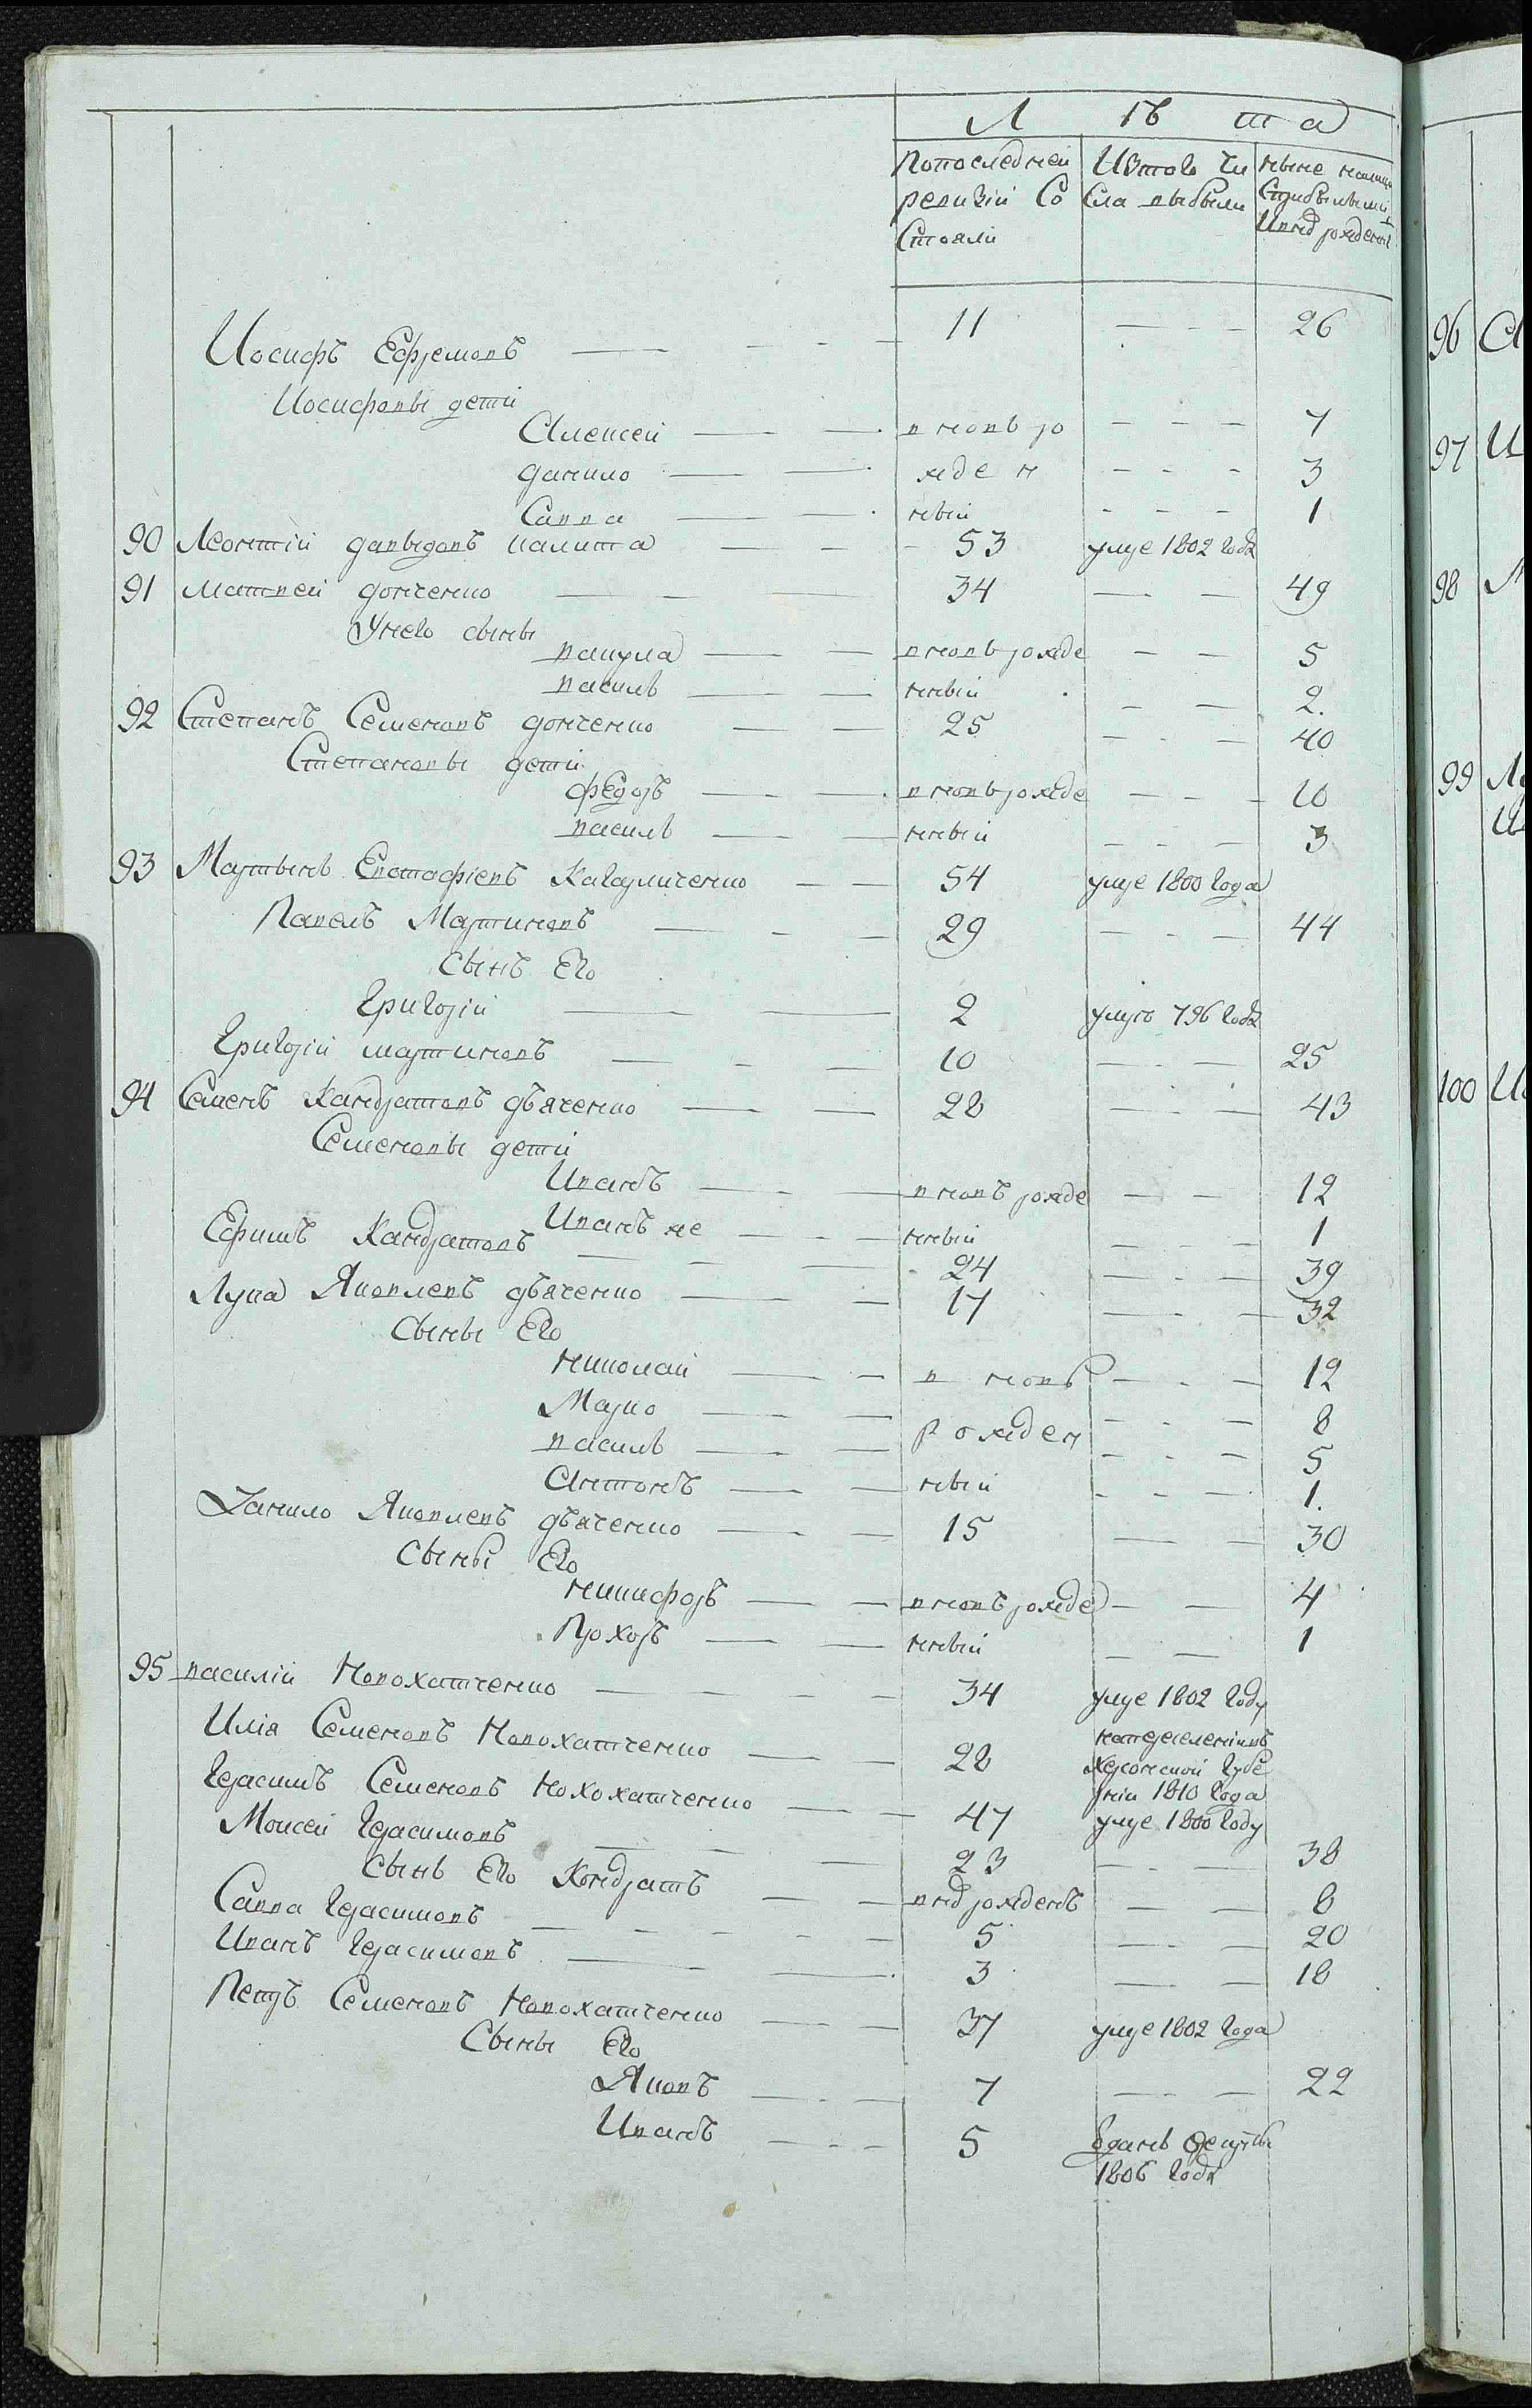 Л ѣ та
Попоследней Истого чи ныне налицо
ревизіи Со Сла выбыли Стрибылыми
Стояли Ивнѣ рожденн
Иосифъ Ефремовъ 11 26
Иосифовы дети
Алексей вновь ро 7
данило жде н 3
Савва ныи 1
90 Леонтій давыдовъ калита 53 умре 1802 года
91 матвей донченко 34 49
Унего сыны
вакула вновь рожде 5
василь нныи 2.
92 Степанъ Семеновъ донченко 25 40
Степановы дети
федоръ вновь рожде 10
василь нныи 3
93 Мартынъ Евстафіевъ Кагарличенко 54 умре 1800 года
Павелъ Мартиновъ 29 44
Сынъ Его
Григорій 2 умре 796 года
Григорій мартиновъ 10 25
94 Семенъ Кандратовъ дяченко 28 43
Семеновы дети
Иванъ вновъ рожде 12
Иванъ же нныи 1
Ефимъ Кандратовъ 24 39
Лука Яковлевъ дьяченко 17 32
Сыны Его
николай в новь 12
Марко рожден 8
василь 5
Антонъ ныи 1.
Данило Яковлевъ дьяченко 15 30
Сыны Его
никифоръ вновъ рожде 4
Прохоръ нныи 1
95 василій Новохатченко 34 умре 1802 году
Илія Семеновъ Новохатченко 28 напереселеніивъ
херсонской губе
рніи 1810 года
Герасимъ Семеновъ Нохохатченко 47 умре 1800 году
Моисей Герасимовъ 23 38
Сынъ Его Кондратъ внѣ рожденъ 8
Савва Герасимовъ 5 20
Иванъ Герасимовъ 3 18
Петръ Семеновъ Новохатченко 37 умре 1802 года
Сыны Его
Яковъ 7 22
Иванъ 5 Здань
1806 года
96
97
98
99
100